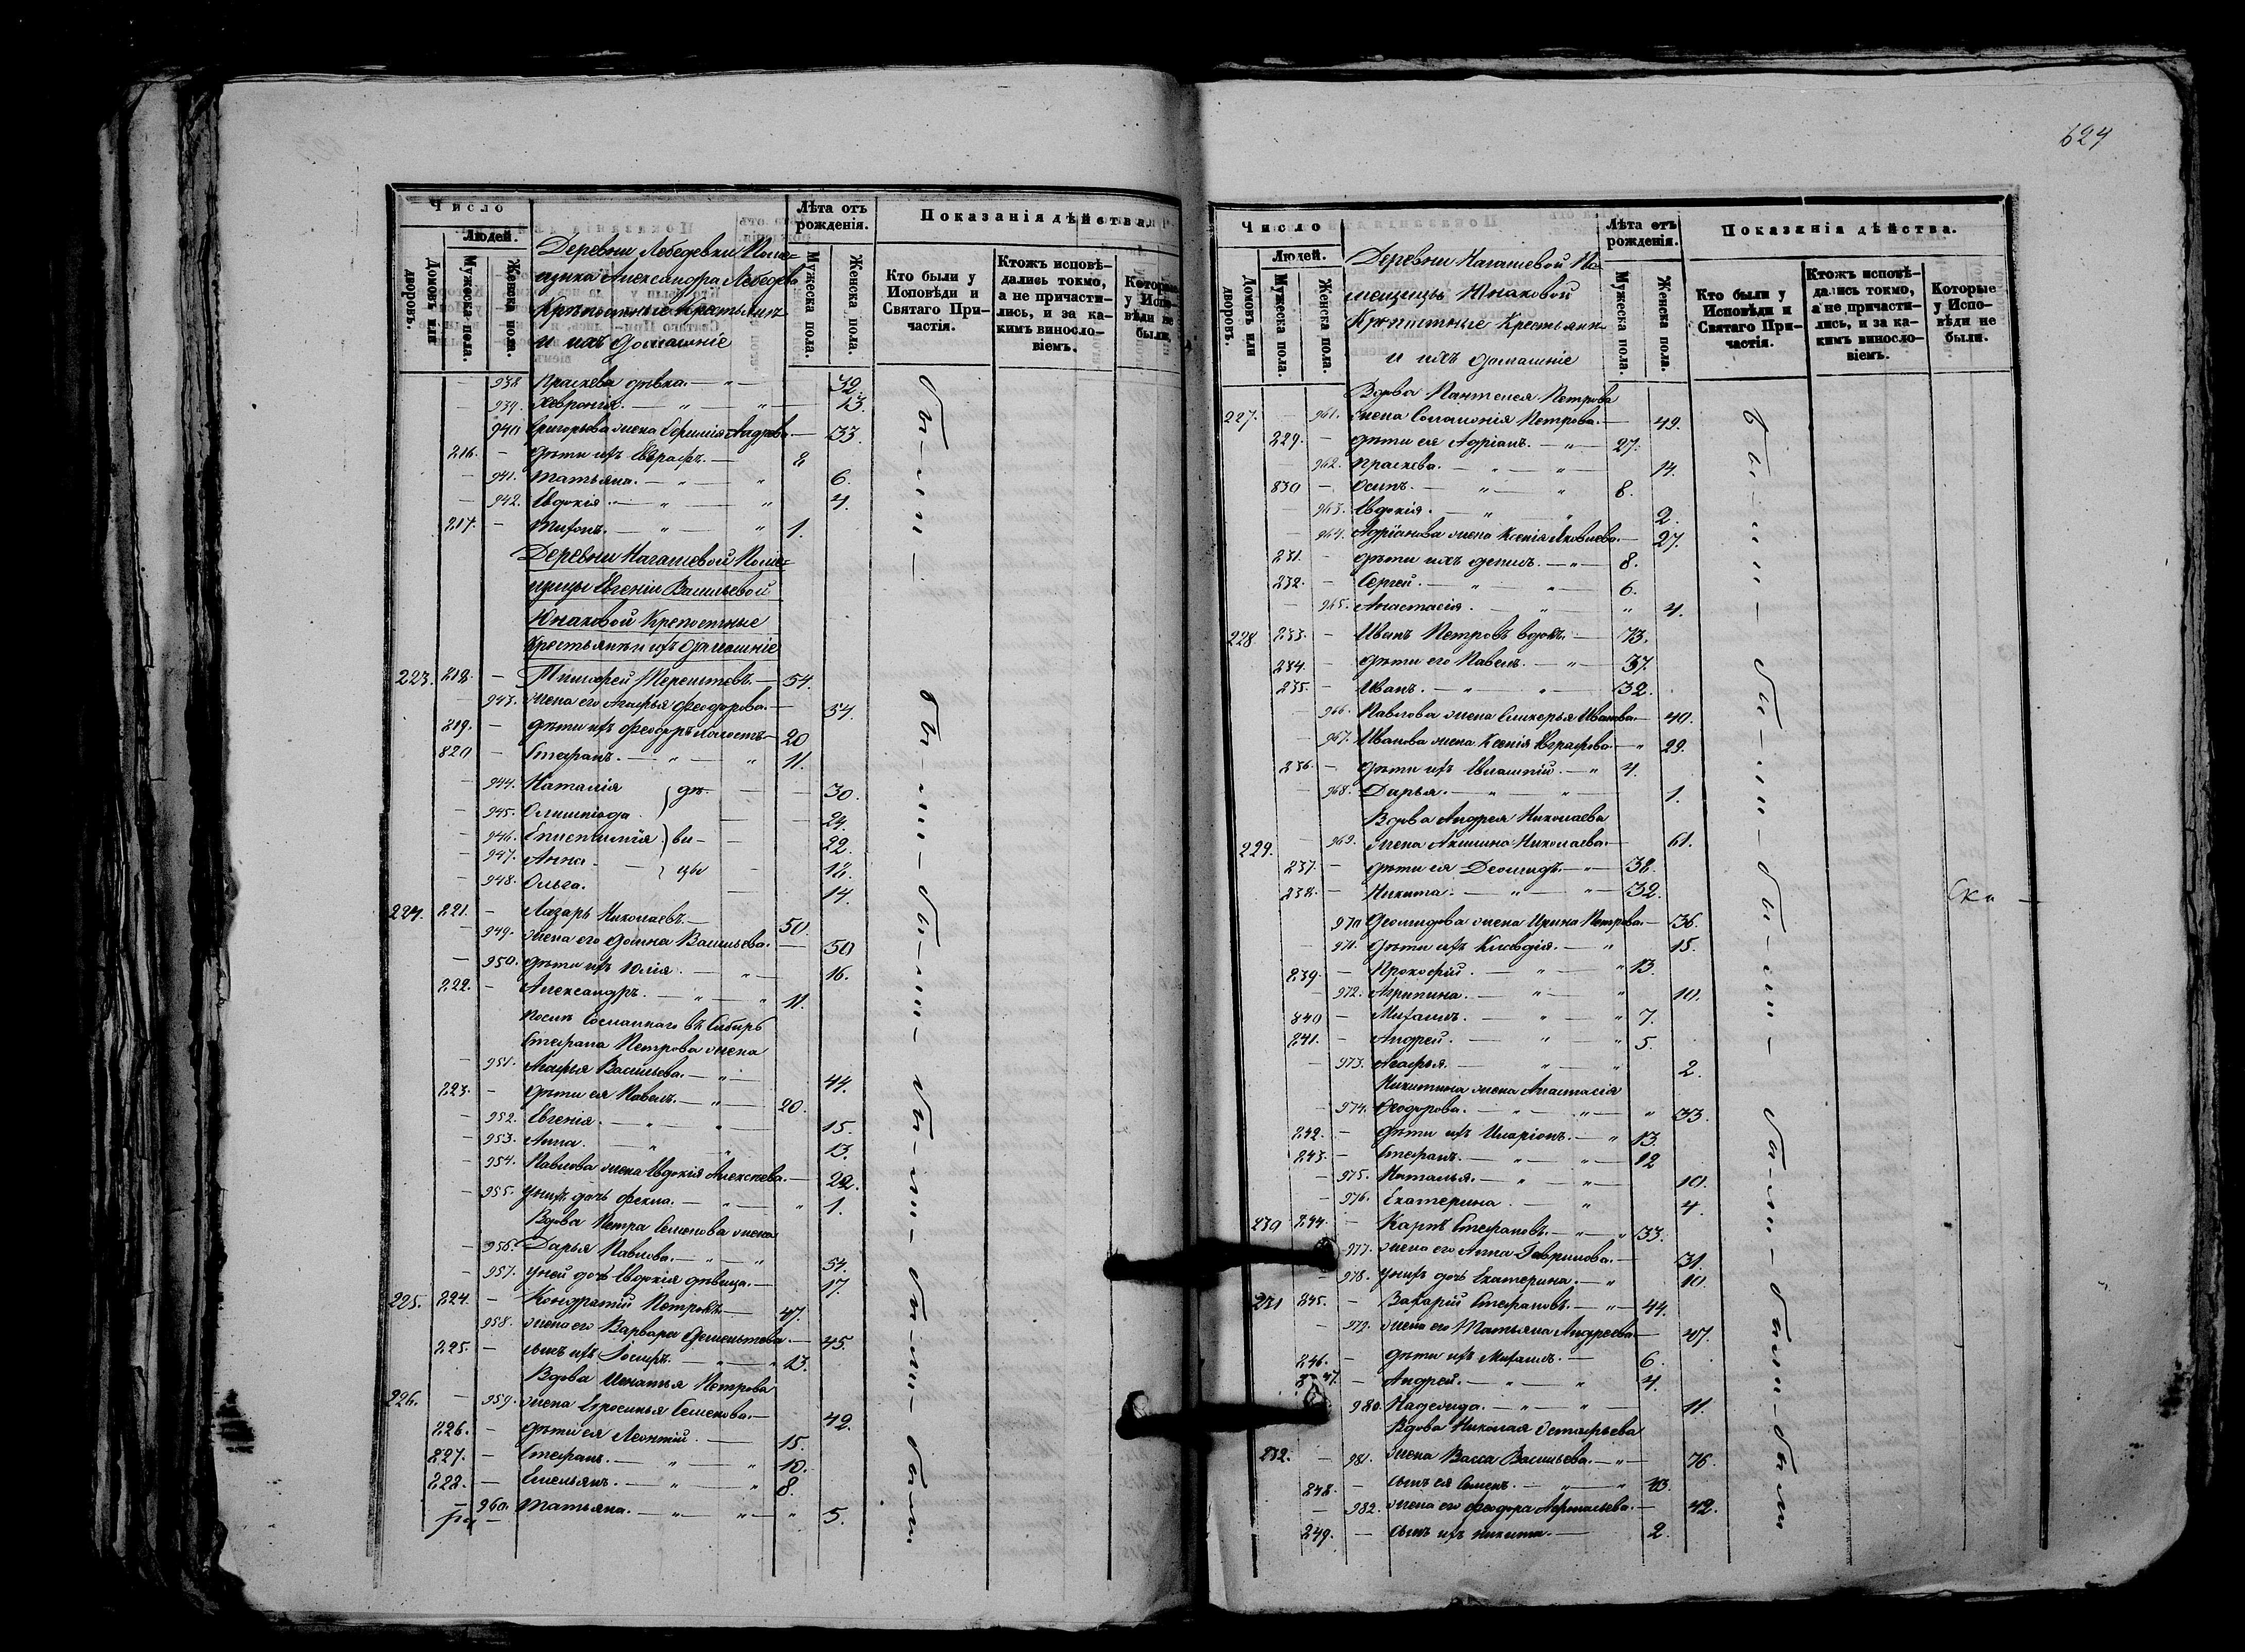 624
Число
Людей.
Домовъ или дворовъ.
Мужеска пола.
Женска пола.
Деревни Лебедевки Поме=
щика Александра Лебедева
Крѣпостные крестьяне
и ихъ домашніе
Лѣта отъ рожденія.
Мужеска пола.
Женска пола.
Показанія дѣйства.
Кто были у Исповѣди и Святаго Причастія.
Ктожъ исповѣдались токмо, а не причастились, и за какимъ винословіемъ.
Которые у Исповѣди не были.
938 Праскева дѣвка. — " —
939. Хеврониія. — " — " 13.
940 Григорьева жена Андреева — 33.
216. — дѣти ихъ Евграфъ. — 8
— 941. Татьяна. — " — " 6.
— 942. Евдокія. — " — " 4.
217. — Тихонъ. — " — " 1.
Деревни Нагашевой Поме=
щицы Евгеніи Васильевой
Юнаковой Крепостные
крестьяне и ихъ домашніе
223. 218. — Тимофей Терентьевъ. — 54.
— 943. жена его Агафья Феодорова. — 54.
219. — дѣти ихъ Феодоръ холостъ — 20
820 — Стефанъ. — " — " 11.
— 944. Наталія дѣ- — 30.
— 945. Олимпіада — 24.
— 946. Епистимія ви- — 22.
— 947. Анна — цы — 18.
— 948. Ольга. — 14.
224. 221. — Лазарь Николаевъ. — 50
— 949. жена его Домна Васильева. — 50
— 950. дѣти ихъ Юлія. — " — 16.
222. — Александръ. — " — " 11.
Сосланнаго въ Сибирь
Стефана Петрова жена
— 951. Агафья Васильева. — " — 44.
223. — дѣти ея Павелъ. — " — 20.
— 952. Евгенія. — " — " — 15.
— 953. Анна. — " — " 13.
— 954. Павлова жена Евдокія Алексѣева. — 22.
— 955. Унихъ дочь Фекла. — " — " 1.
Вдова Петра Семенова жена
— 956. Дарья Павлова. — " — " 54.
— 957. Уней дочь Евдокія дѣвица. — 17.
225. 224. — Кондратій Петровъ — 47.
958. жена его Варвара Дементьева. — 45.
225. — сынъ ихъ Іосифъ. — " — " 13.
Вдова Игнатья Петрова
226. — 959. жена Ефросинья Семенова. — 42.
226. — дѣти ея Леонтій. — 15.
227. — Стефанъ. — " — " 10.
228. — Емельянъ. — " — " 8
— 960. Татьяна. — " — " — " 5.
бы — ли — бы — ли — бы — ли — бы — ли — бы — ли — были.
Число
Людей.
Домовъ или дворовъ.
Мужеска пола.
Женска пола.
Деревни Нагашевой По
мещицы Юнаковой
Крепостные Крестьяне
и ихъ домашніе
Лѣта отъ рожденія.
Мужеска пола.
Женска пола.
Показанія дѣйства.
Кто были у Исповѣди и Святаго Причастія.
Ктожъ исповѣдались токмо, а не причастились, и за какимъ винословіемъ.
Которые у Исповѣди не были.
Вдова Пантелея Петрова
227. — 961. жена Соломонія Петрова. — 49.
229. — дѣти ея Адріанъ. — " — 27.
— 962. Праскева. — " — " 14.
830 — Осипъ. — " — " 8.
— 963. Евдокія. — " — " 2.
— 964. Адріанова жена Ксенія Яковлева. — 27.
231. — дѣти ихъ — " — 8.
232. — Сергей. — " — " — 6.
— 965. Анастасія. — " — " 4.
228. 233. — Иванъ Петровъ вдовъ. — 73.
234. — дѣти его Павелъ. — " — 37.
235. — Иванъ. — " — " — 32.
— 966. Павлова жена Гликерья Иванова. — 40.
— 967. Иванова жена Ксенія Евграфова. — " 29.
236. — дѣти ихъ Евлампій. — " 4.
— 968. Дарья. — " — " 1.
Вдова Андрея Николаева
229. — 969. жена Акилина Николаева. — 61.
237. — дѣти ея Деомидъ. — " — 38.
238. — Никита. — " — " — 32.
970 Деомидова жена Ирина Петрова. — 36.
— 971. дѣти ихъ Клавдія. — " 15.
239. — Прокофій. — " — " 13.
— 972. Агрипина. — " — " 10.
840 — Михаилъ. — " — " 7.
241. — Андрей. — " — " 5.
— 973. Агафья. — " — " 2.
Никитина жена Анастасія
— 974. Феодорова. — " — " — " 33.
242. — дѣти ихъ Иларіонъ. — " 13.
243. — Стефанъ. — " — " — 12
— 975. Наталья. — " — " — 10.
— 976. Екатерина. — " 4.
230 244. — Карпъ Стефановъ. — " — " 33.
977. жена его Анна Гаврилова. — 31.
— 978. Унихъ дочь Екатерина. — " 10.
231 245. — Захарій Стефановъ. — " — 44.
— 979. жена его Татьяна Андреева — 47.
246. — дѣти ихъ Михаилъ. — 6.
247. — Андрей. — " — " 4.
980. Надежда. — " — " — 11.
Вдова Николая Остафьева
232. — 981. жена Васса Васильева. — " — 76
248. — сынъ ея Семенъ. — " — " 43.
— 982. жена его Феодора — 42.
249. — сынъ ихъ Никита. — 2.
бы — ли — бы — ли — бы — ли — бы — ли — были — были